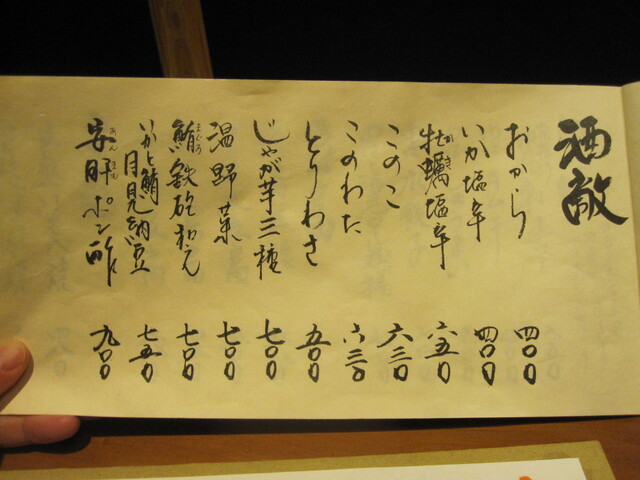 酒敵
おから 四〇〇
いか塩辛 四〇〇
牡蠣塩辛 六五〇
かき
このこ 六三〇
このわた 六三〇
とりわさ 五〇〇
じゃが芋三種 七〇〇
温野菜 七〇〇
鮪鉄砲和え 七〇〇
まぐろ
いかと鮪 月見納豆 七五〇
安肝ポン酢 九〇〇
あんきも